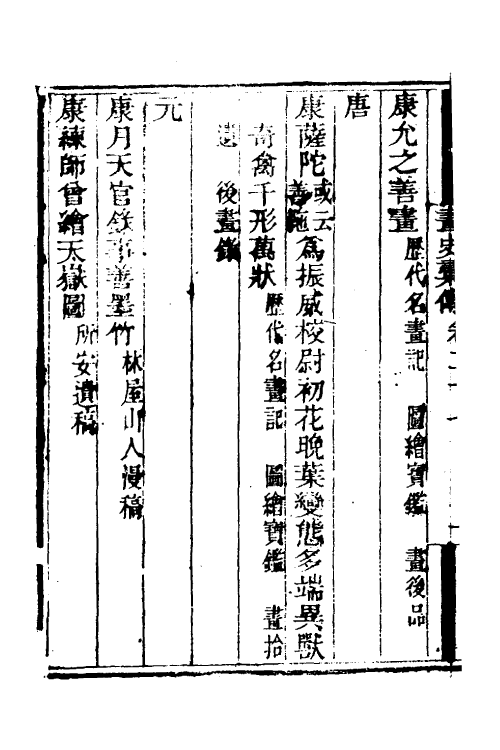 畫史彙傳 卷二十
康允之善畫 歷代名畫記 圖繪寶鑑 畫後品
唐
康薩陀 或云善𨽻 爲振威校尉初花晚葉變態多端異獸
奇禽千形萬狀 歷代名畫記 圖繪寶鑑 畫拾
遺 後畫錄
元
康月天官錄事善墨竹 林屋山人漫稿
康練師曾繪天嶽圖 所安遺稿